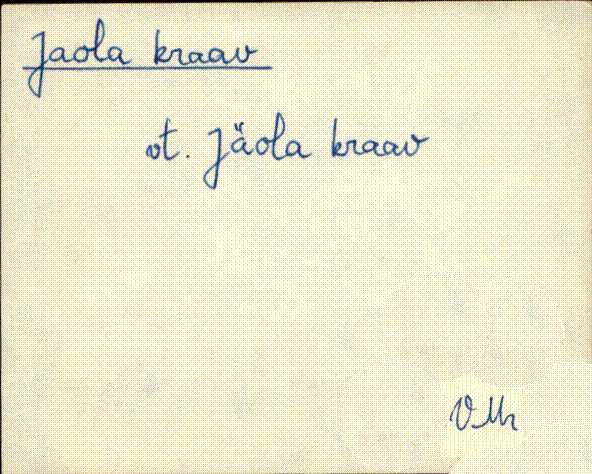 Jaola kraav
vt. Jäola kraav